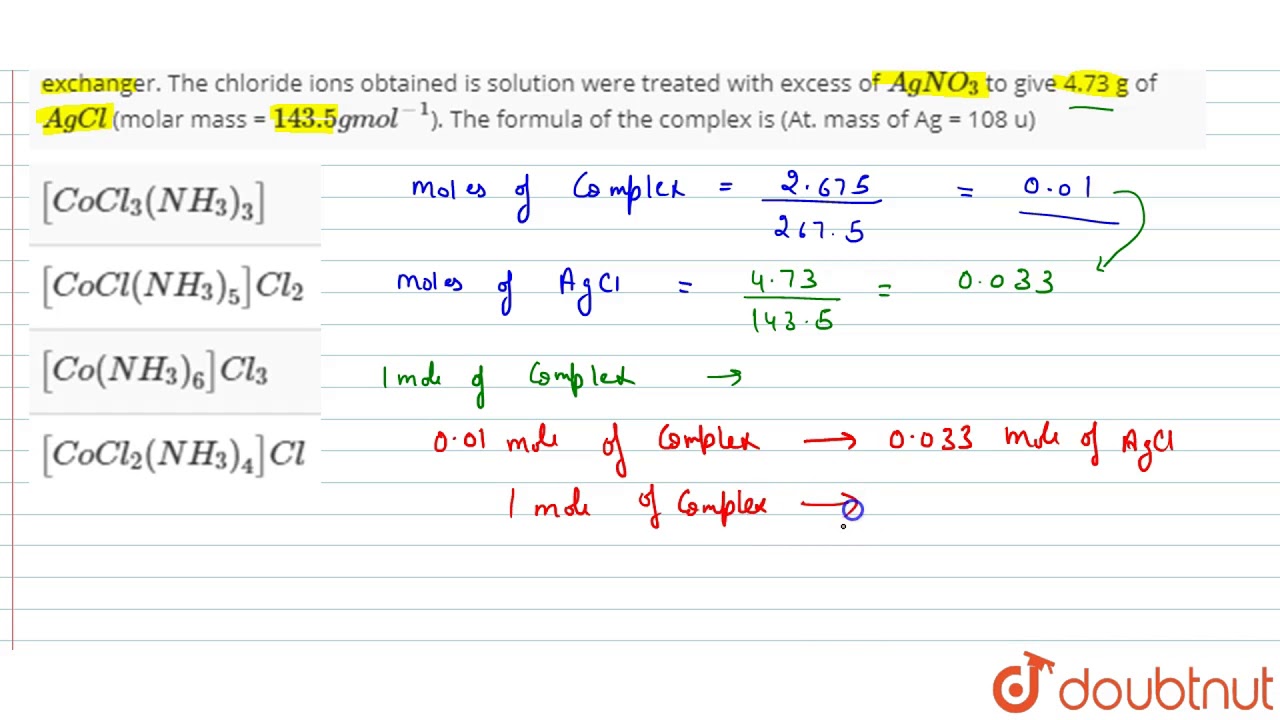 exchanger. The chloride ions obtained is solution were treated with excess of AgNO₃ to give 4.73 g of
AgCl (molar mass = 143.5gmol⁻¹). The formula of the complex is (At. mass of Ag = 108 u)
[CoCl₃(NH₃)₃]
moles of Complex = 2.675 / 267.5 = 0.01
[CoCl(NH₃)₅]Cl₂
moles of AgCl = 4.73 / 143.5 = 0.033
[Co(NH₃)₆]Cl₃
1 mole of Complex →
[CoCl₂(NH₃)₄]Cl
0.01 mole of Complex → 0.033 mole of AgCl
1 mole of Complex →
doubtnut